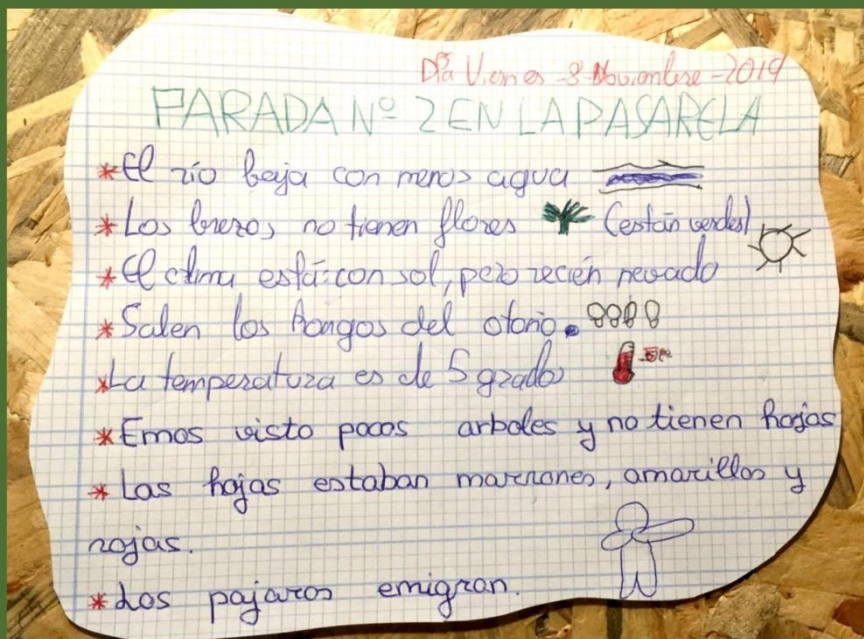 Día Viernes -8-Noviembre-2019
PARADA Nº 2 EN LA PASARELA
*El río baja con menos agua
*Los brezos no tienen flores (están verdes)
*El clima está: con sol, pero recién nevado
*Salen los hongos del otoño.
*La temperatura es de 5 grados
*Emos visto pocos arboles y no tienen hojas
*Las hojas estaban marrones, amarillas y
rojas.
*Los pajaros emigran.